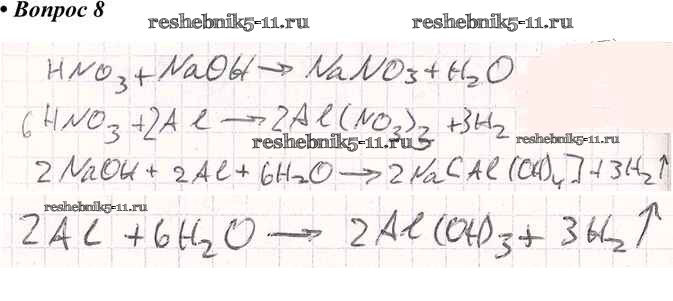 • Вопрос 8
reshebnik5-11.ru reshebnik5-11.ru
HNO3 + NaOH → NaNO3 + H2O
6HNO3 + 2Al → 2Al(NO3)3 + 3H2
reshebnik5-11.ru reshebnik5-11.ru
2NaOH + 2Al + 6H2O → 2Na[Al(OH)4] + 3H2↑
reshebnik5-11.ru
2Al + 6H2O → 2Al(OH)3 + 3H2↑